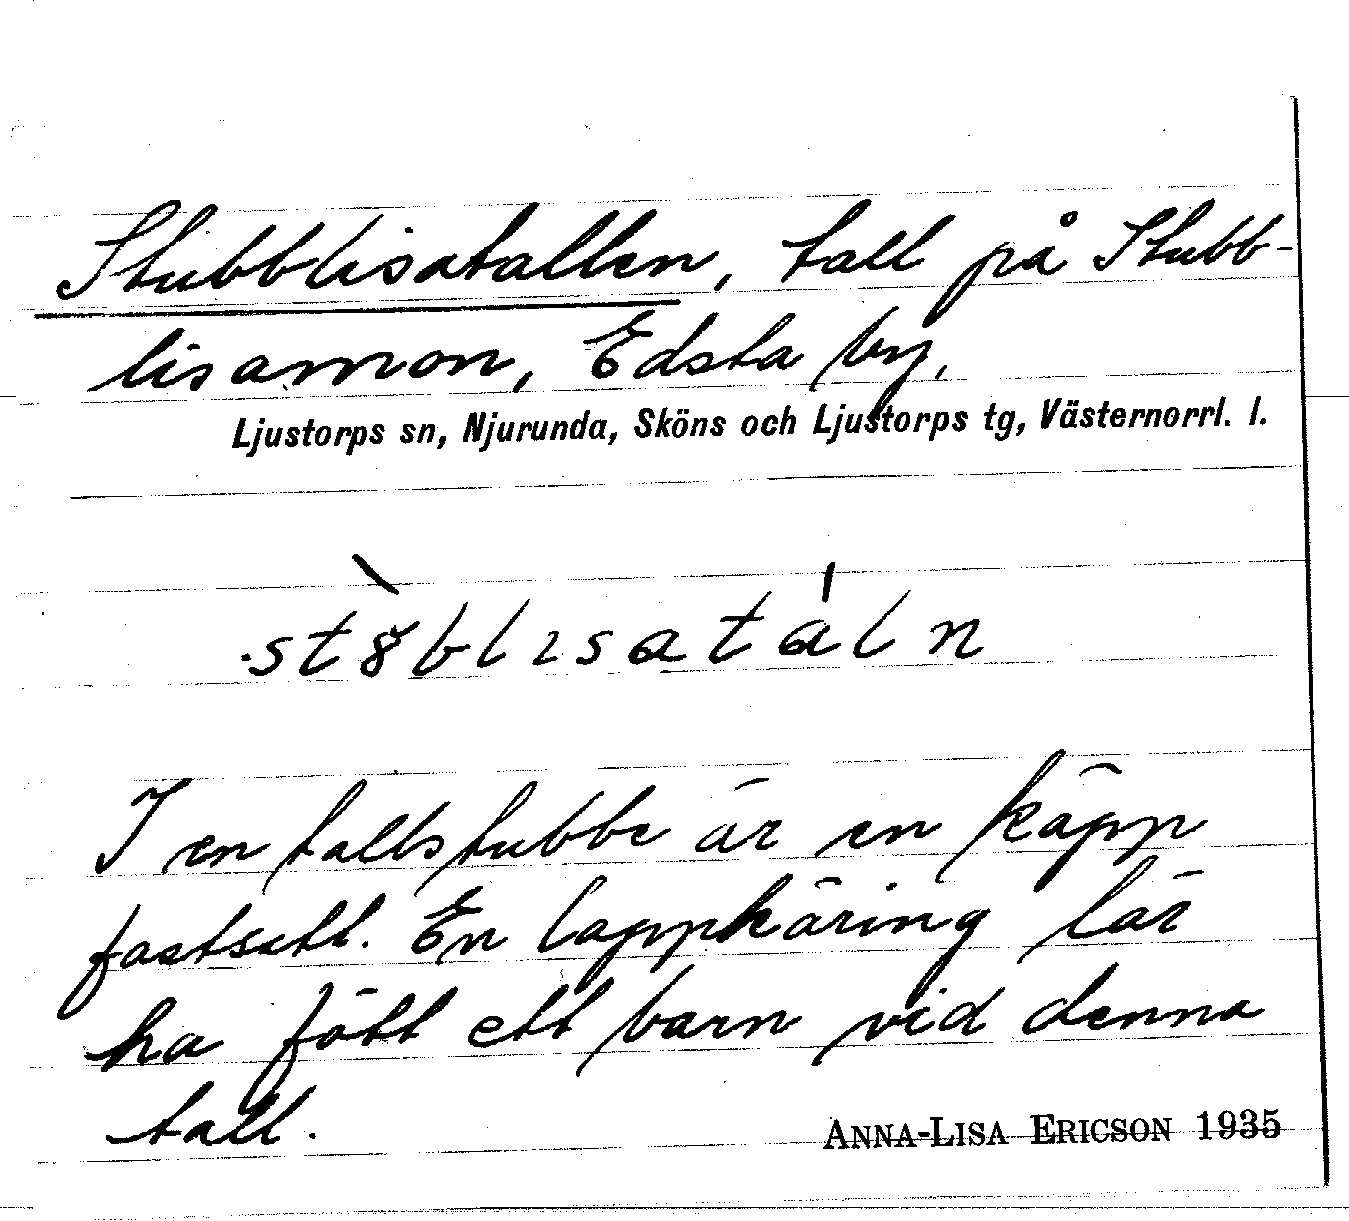 Stubblisatallen, tall på Stubb-
lisamon, Edsta by,
Ljustorps sn, Njurunda, Sköns och Ljustorps tg, Västernorrl. l.
st8̀blısatáln
I en tallstubbe är en käpp
fastsatt. En lappkäring lär
ha fött ett barn vid denna
tall.
ANNA-LISA ERICSON 1935